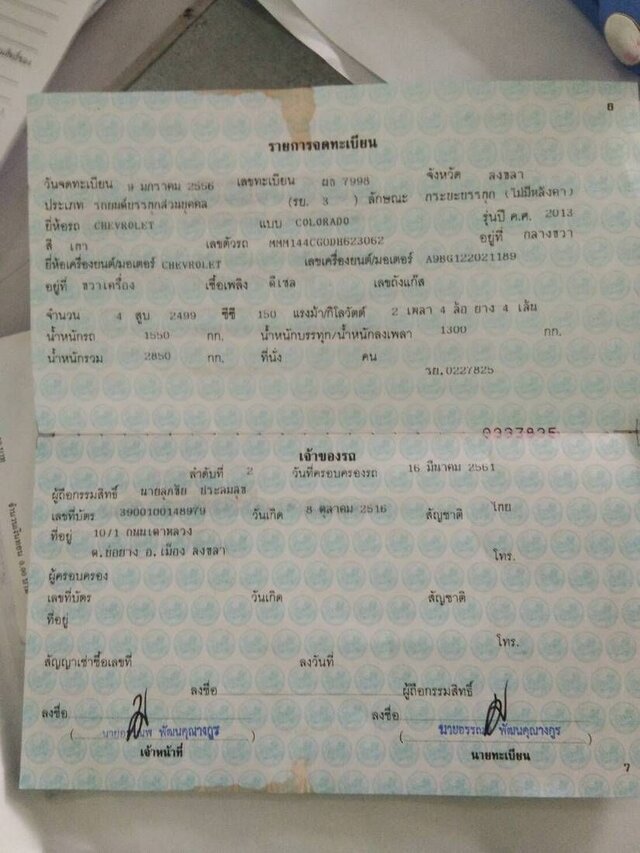 6
รายการจดทะเบียน
วันจดทะเบียน 9 มกราคม 2556 เลขทะเบียน ผธ 7998 จังหวัด สงขลา
ประเภท รถยนต์บรรทุกส่วนบุคคล (รย. 3 ) ลักษณะ กระบะบรรทุก (ไม่มีหลังคา)
ยี่ห้อรถ CHEVROLET แบบ COLORADO รุ่นปี ค.ศ. 2013
สี เทา เลขตัวรถ MMM144CG0DH623062 อยู่ที่ กลางขวา
ยี่ห้อเครื่องยนต์/มอเตอร์ CHEVROLET เลขเครื่องยนต์/มอเตอร์ A9BG122021189
อยู่ที่ ขวาเครื่อง เชื้อเพลิง ดีเซล เลขถังแก๊ส
จำนวน 4 สูบ 2499 ซีซี 150 แรงม้า/กิโลวัตต์ 2 เพลา 4 ล้อ ยาง 4 เส้น
น้ำหนักรถ 1550 กก. น้ำหนักบรรทุก/น้ำหนักลงเพลา 1300 กก.
น้ำหนักรวม 2850 กก. ที่นั่ง คน
รย.0227825
เจ้าของรถ
ลำดับที่ 2 วันที่ครอบครองรถ 16 มีนาคม 2561
ผู้ถือกรรมสิทธิ์ นายสุภชัย ประสมสุข
เลขที่บัตร 3900100148979 วันเกิด 8 ตุลาคม 2516 สัญชาติ ไทย
ที่อยู่ 10/1 ถนนเตาหลวง
ต.บ่อยาง อ.เมือง สงขลา โทร.
ผู้ครอบครอง
เลขที่บัตร วันเกิด สัญชาติ
ที่อยู่
โทร.
สัญญาเช่าซื้อเลขที่ ลงวันที่
ลงชื่อ ผู้ถือกรรมสิทธิ์
ลงชื่อ ลงชื่อ
( พัฒนคุณางกูร ) ( พัฒนคุณางกูร )
เจ้าหน้าที่ นายทะเบียน
7